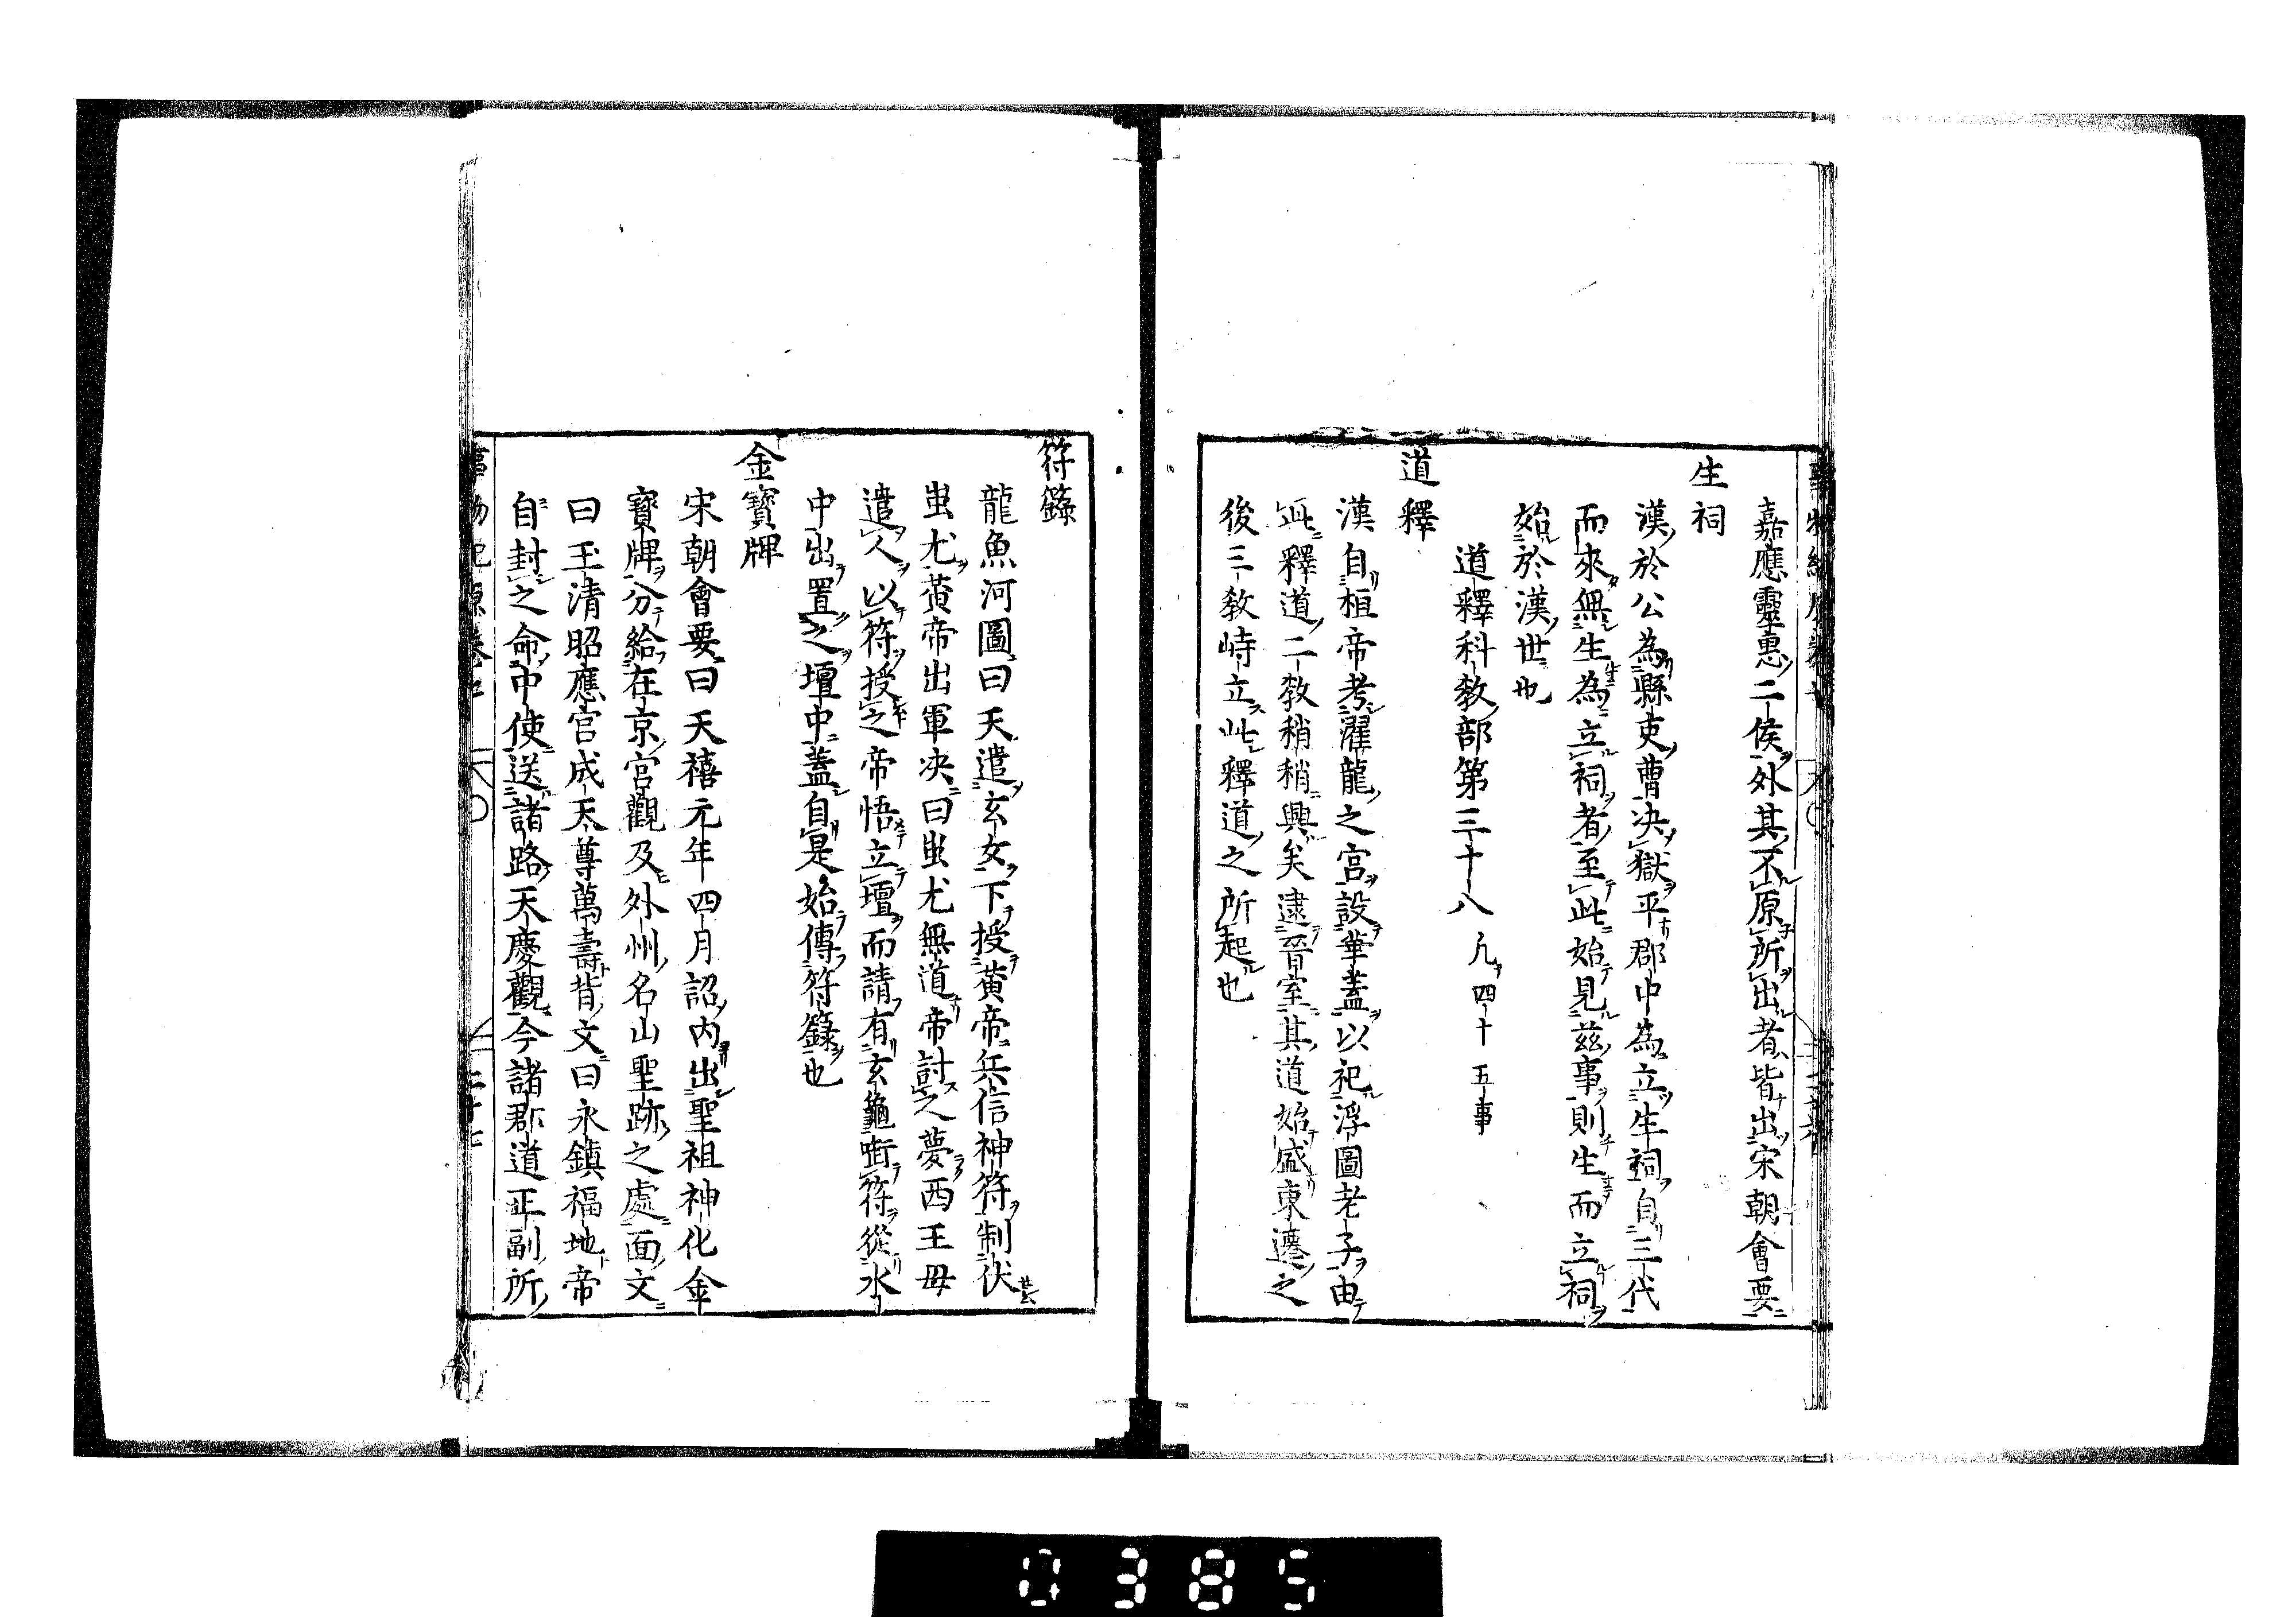 嘉應靈惠二侯外其不原所出者皆出宋朝會要
生祠
漢於公為縣吏曹决獄平郡中為立生祠自三代
而來無生為立祠者至此始見茲事則生而立祠
始於漢世也
道釋科教部第三十八 凡四十五事
道釋
漢自桓帝考濯龍之宮設華蓋以祀浮圖老子由
此釋道二教稍稍興矣逮晉室其道始盛東遷之
後三教峙立此釋道之所起也
符籙
龍魚河圖曰天遣玄女下授黃帝兵信神符制伏
蚩尤黃帝出軍决曰蚩尤無道帝討之夢西王母
遣人以符授之帝悟立壇而請有玄龜啣符從水
中出置之壇中蓋自是始傳符籙也
金寶牌
宋朝會要曰天禧元年四月詔內出聖祖神化金
寶牌分給在京宮觀及外州名山聖跡之處面文
曰玉清昭應宮成天尊萬壽背文曰永鎮福地帝
自封之命中使送諸路天慶觀今諸郡道正副所
0385